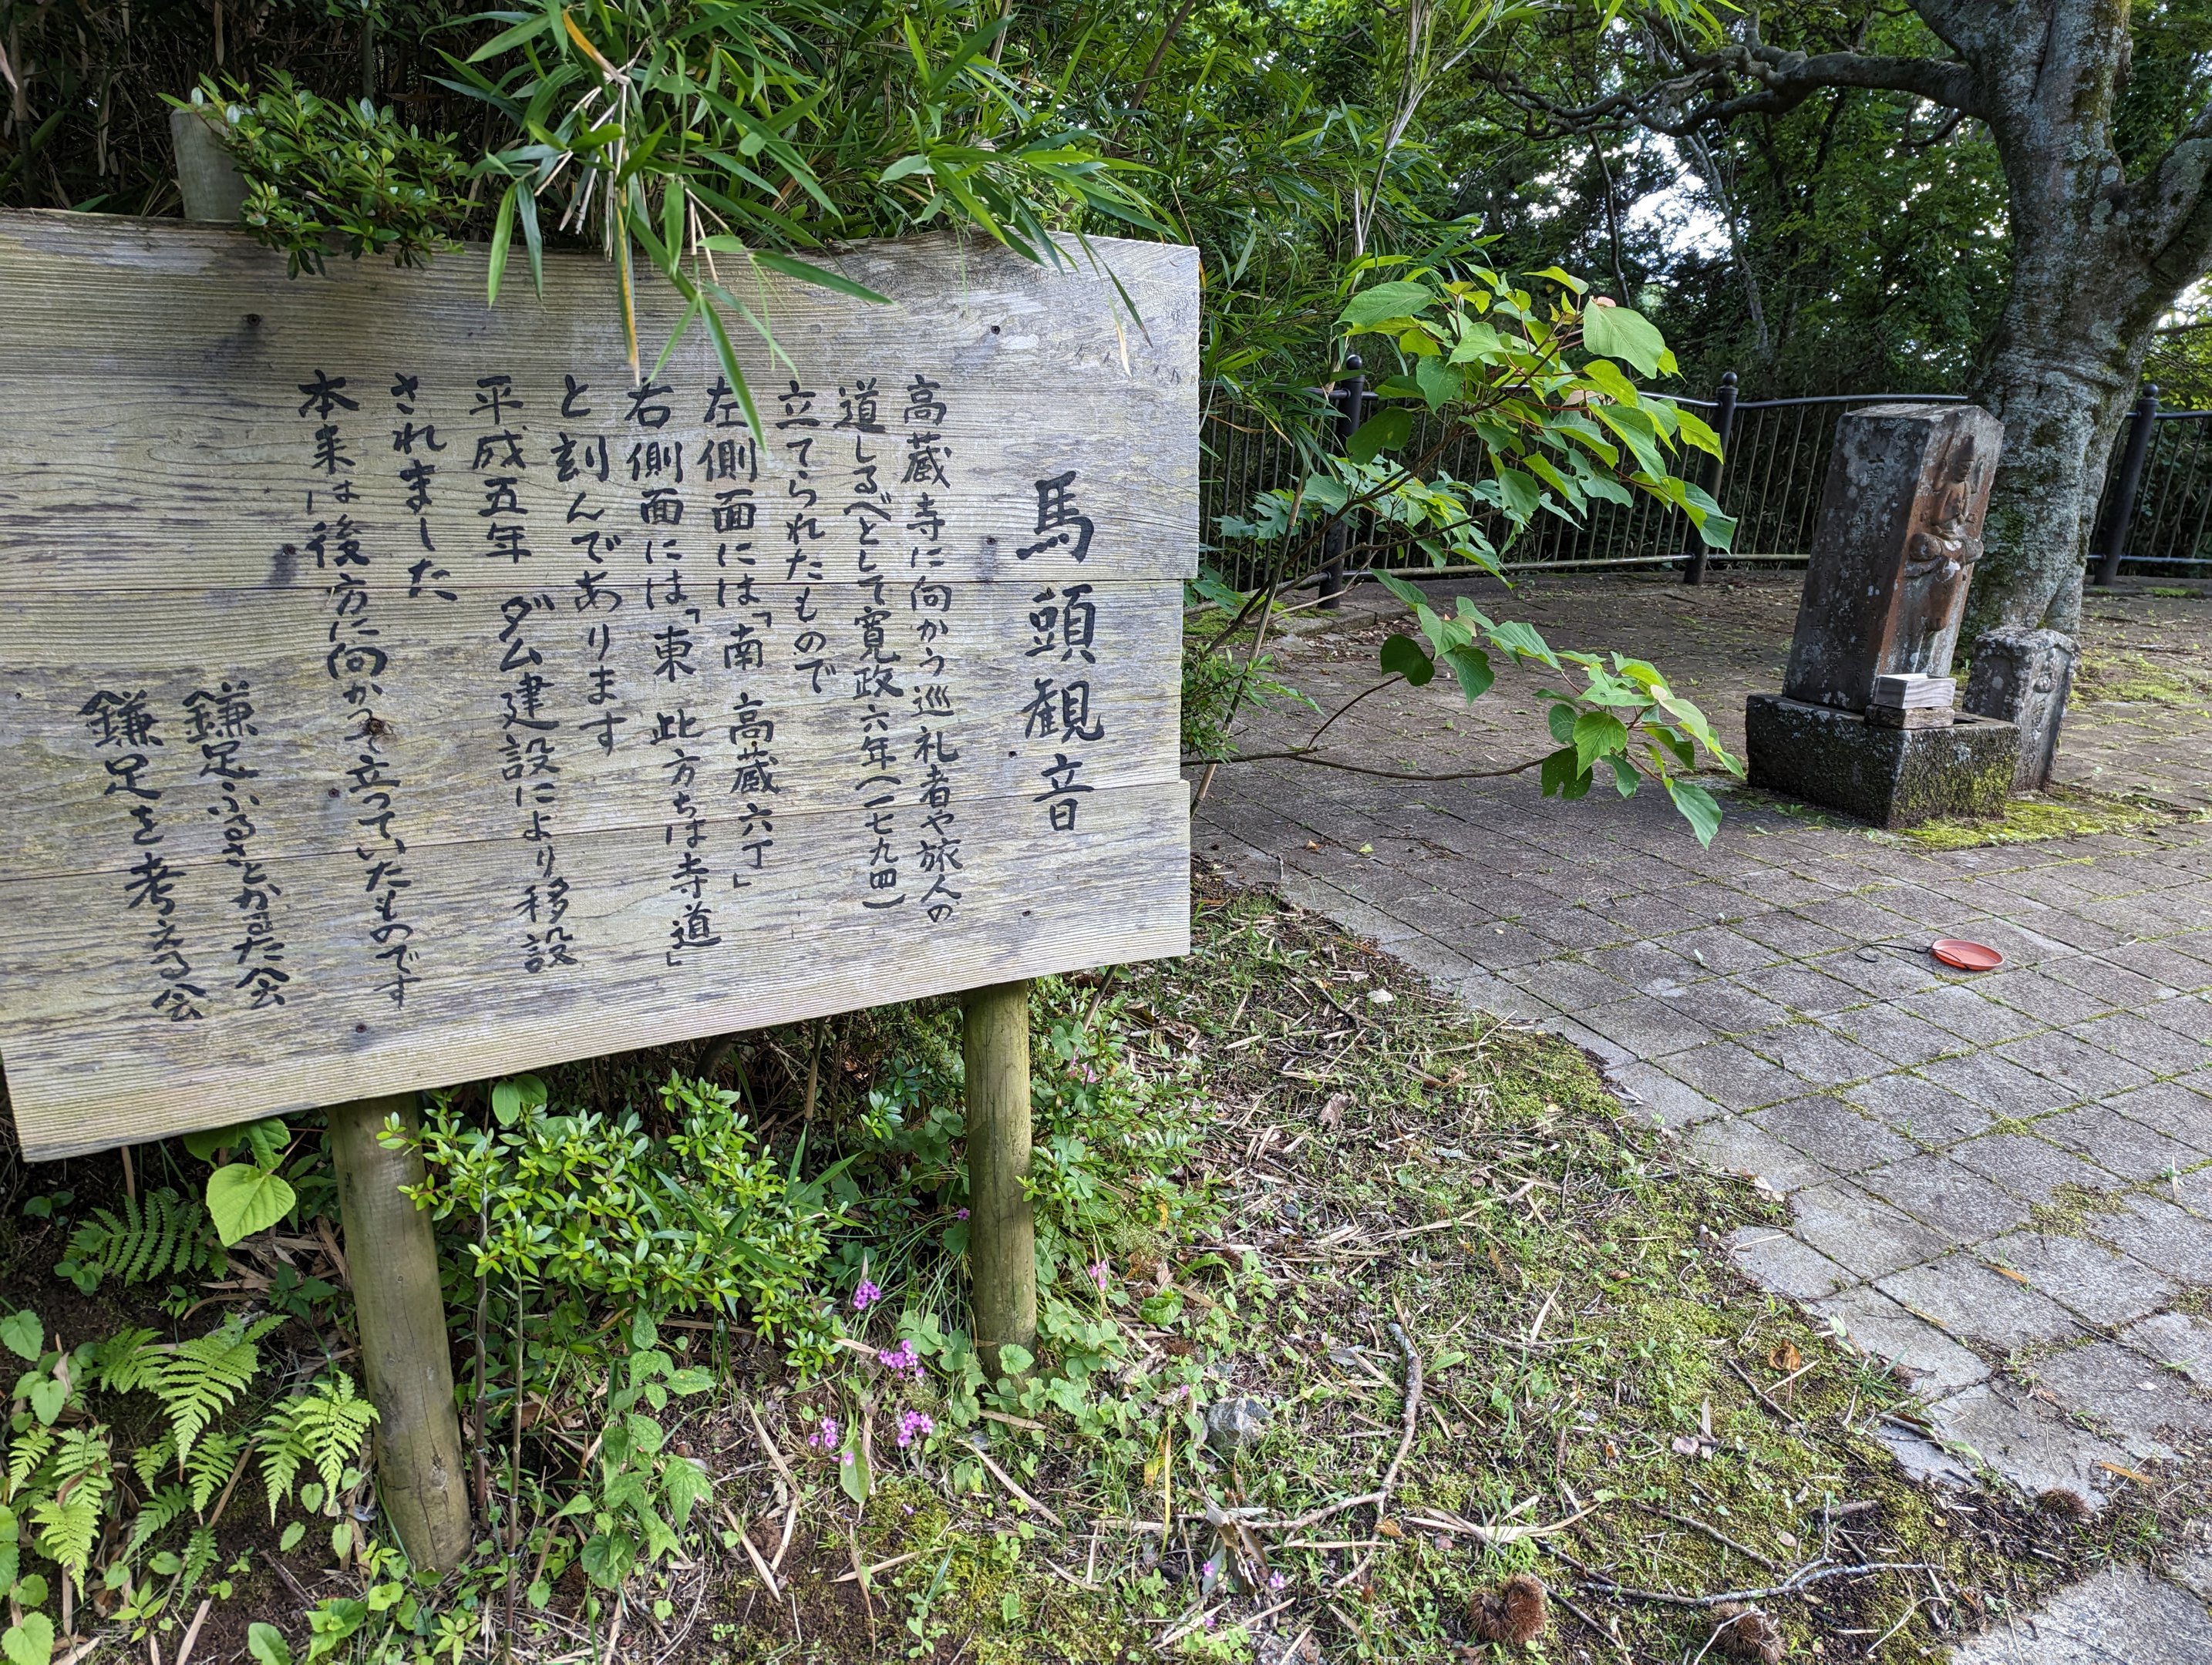 馬頭観音
高蔵寺に向かう巡礼者や旅人の
道しるべとして寛政六年(一七九四)
立てられたもので
左側面には「南 高蔵六丁」
右側面には「東 此方ちは寺道」
と刻んであります
平成五年 ダム建設により移設
されました
本来は後方に向かって立っていたものです
鎌足ふるさとかるた会
鎌足を考える会